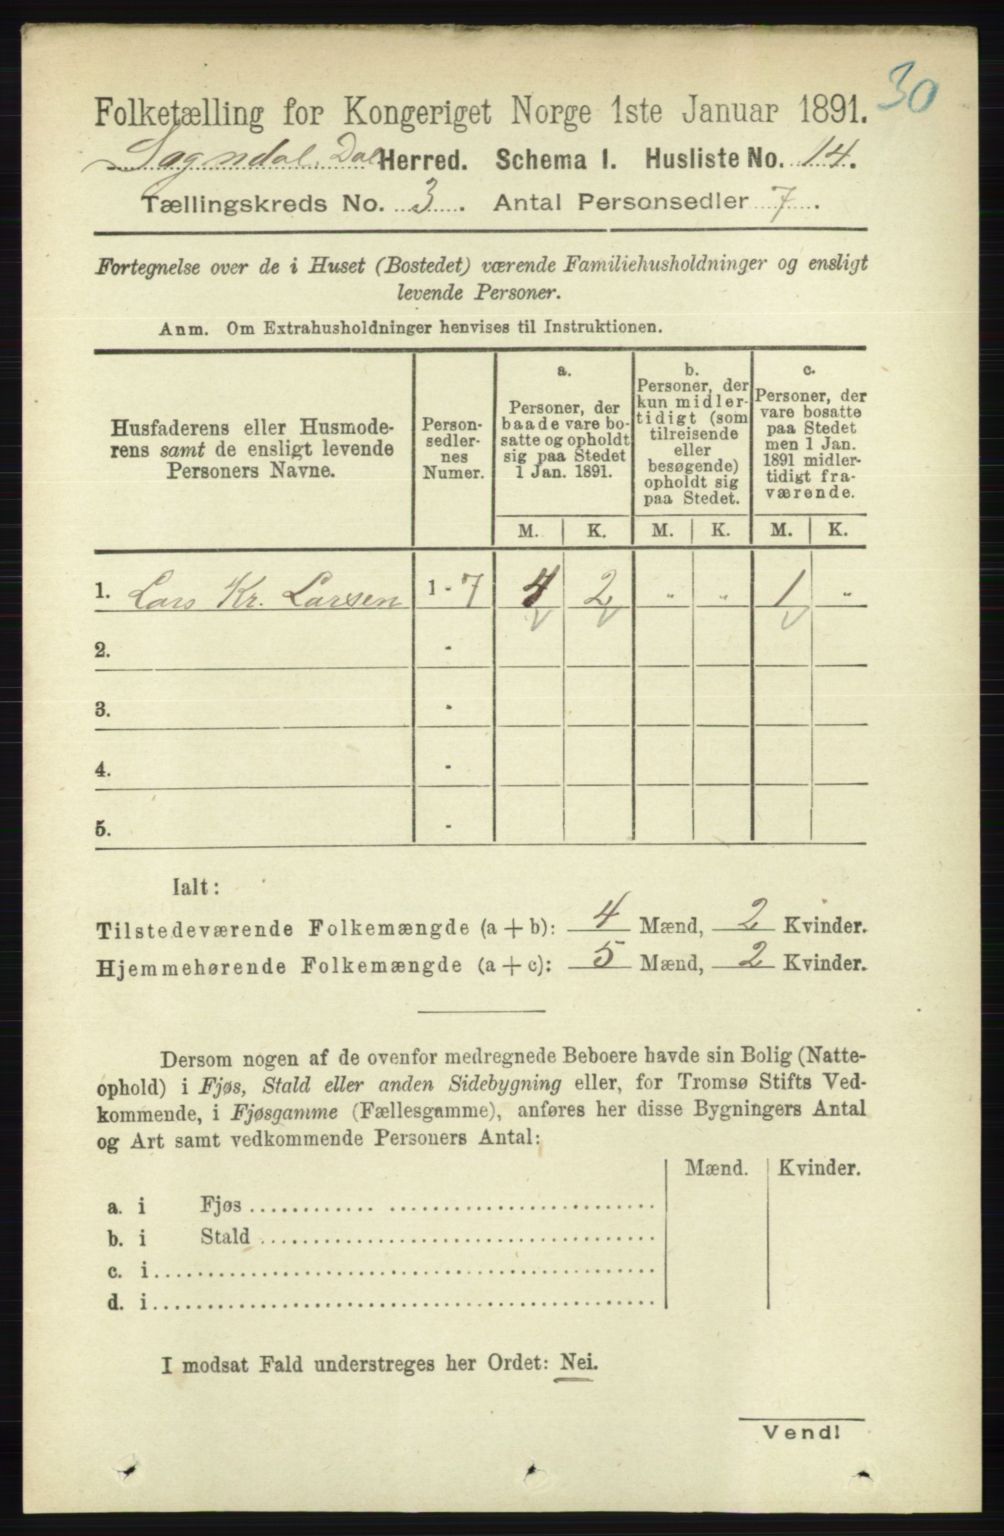 30
Folketælling for Kongeriget Norge 1ste Januar 1891.
Sogndal, Dal Herred. Schema 1. Husliste No. 14.
Tællingskreds No. 3. Antal Personsedler 7.
Fortegnelse over de i Huset (Bostedet) værende Familiehusholdninger og ensligt
levende Personer.
Anm. Om Extrahusholdninger henvises til Instruktionen.
Husfaderens eller Husmode-
rens samt de ensligt levende
Personers Navne.
Person-
sedler-
nes
Numer.
a.
Personer, der
baade vare bo-
satte og opholdt
sig paa Stedet
1 Jan. 1891.
b.
Personer, der
kun midler-
tidigt (som
tilreisende
eller
besøgende)
opholdt sig
paa Stedet.
c.
Personer, der
vare bosatte
paa Stedet
men 1 Jan.
1891 midler-
tidigt fra-
værende.
M. K. M. K. M. K.
1. Lars Kr. Larsen 1 - 7 4 2 " " 1 "
2. -
3. -
4. -
5. -
Ialt:
Tilstedeværende Folkemængde (a + b): 4 Mænd, 2 Kvinder.
Hjemmehørende Folkemængde (a + c): 5 Mænd, 2 Kvinder.
Dersom nogen af de ovenfor medregnede Beboere havde sin Bolig (Natte-
ophold) i Fjøs, Stald eller anden Sidebygning eller, for Tromsø Stifts Ved-
kommende, i Fjøsgamme (Fællesgamme), anføres her disse Bygningers Antal
og Art samt vedkommende Personers Antal:
Mænd. Kvinder.
a. i Fjøs
b. i Stald
c. i
d. i
I modsat Fald understreges her Ordet: Nei.
Vend!